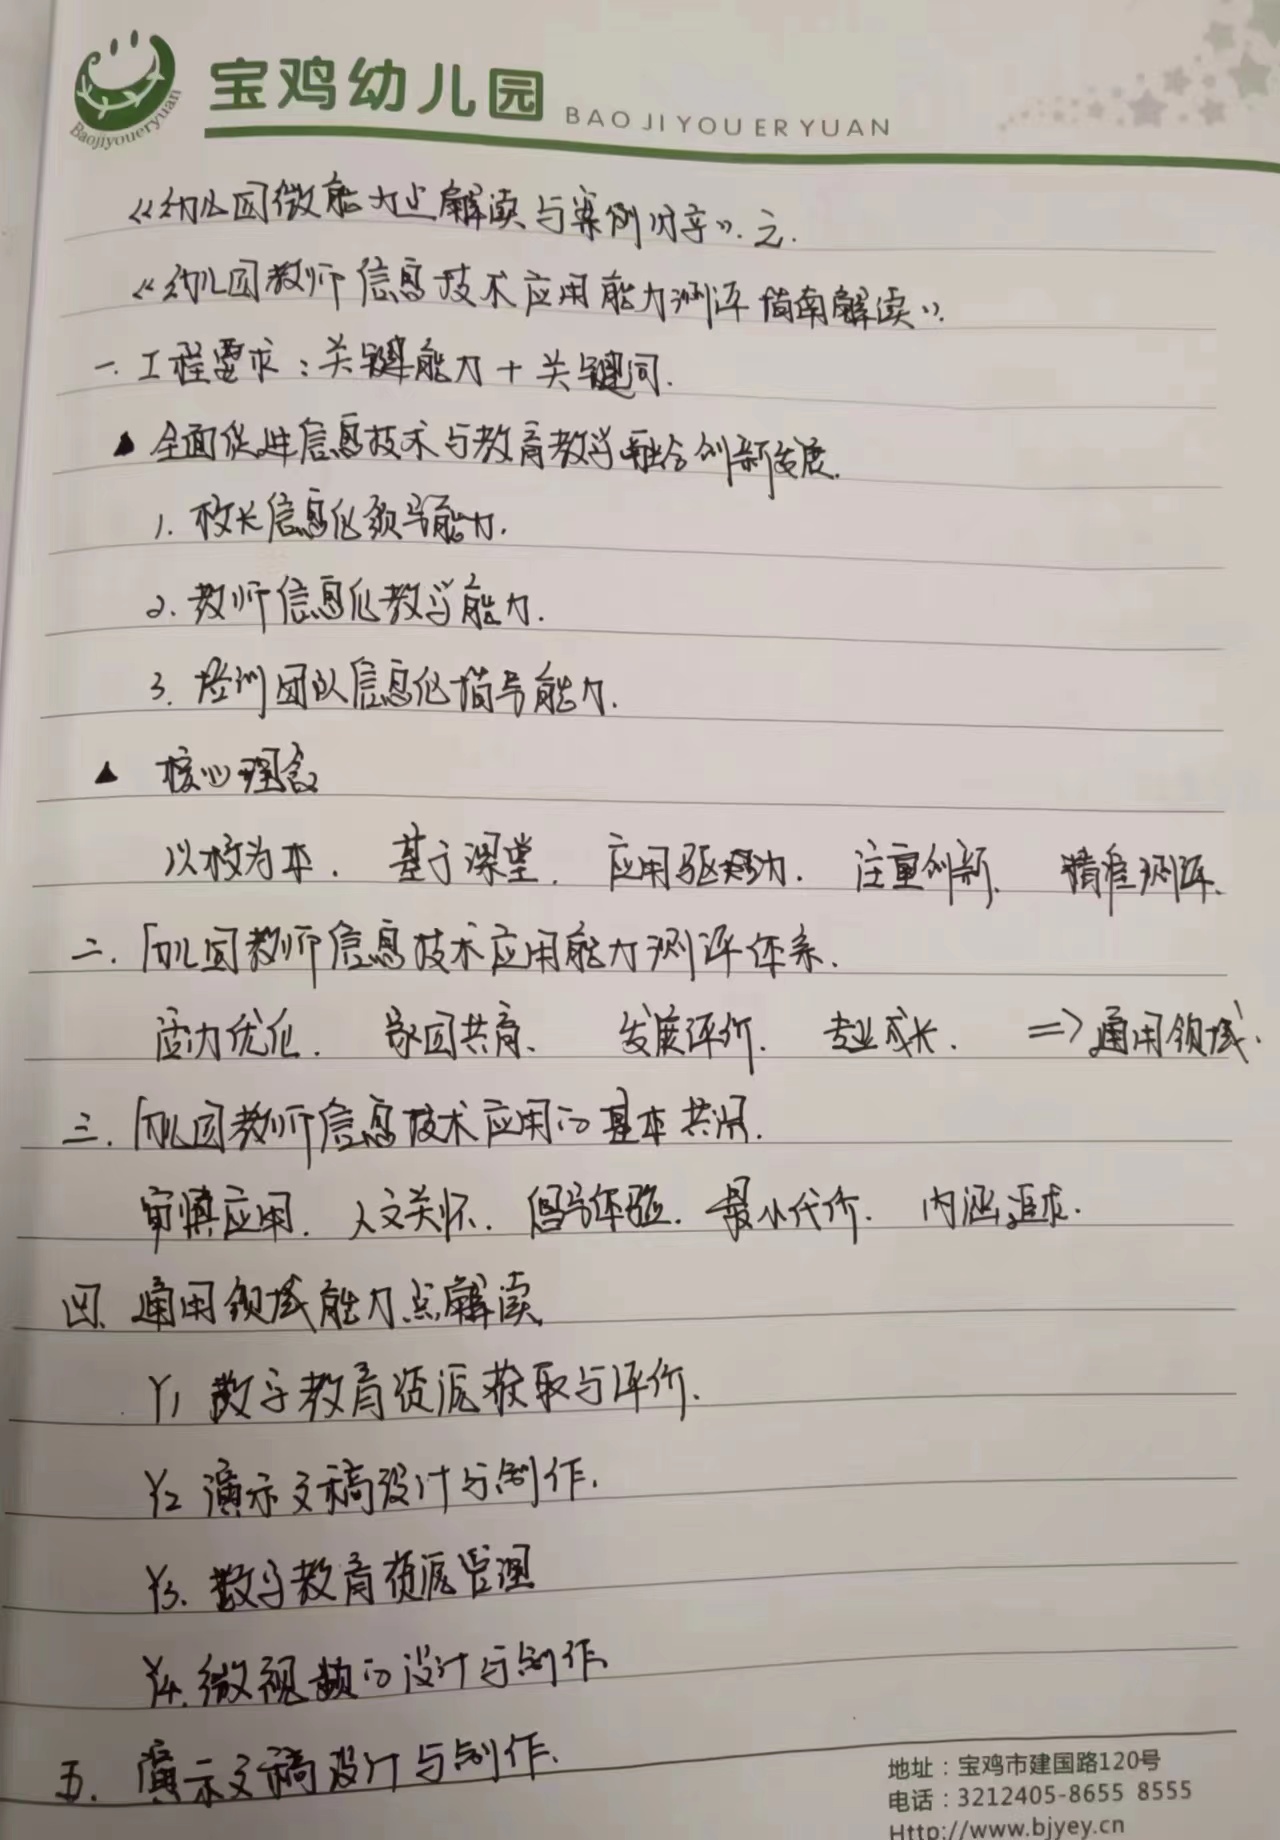 宝鸡幼儿园 BAO JI YOU ER YUAN
Baojiyoueryuan
《幼儿园微能力点解读与案例分享》之
《幼儿园教师信息技术应用能力测评指南解读》
一.工程要求:关键能力+关键词.
▲ 全面促进信息技术与教育教学融合创新发展.
1. 校长信息化领导能力.
2. 教师信息化教学能力.
3. 培训团队信息化指导能力.
▲ 核心理念
以校为本. 基于课堂. 应用驱动. 注重创新. 精准测评.
二. 幼儿园教师信息技术应用能力测评体系.
活力优化. 家园共育. 发展评价. 专业成长. => 通用领域.
三. 幼儿园教师信息技术应用的基本共识.
审慎应用. 人文关怀. 倡导体验. 最小代价. 内涵追求.
四. 通用领域能力点解读
Y1 数字教育资源获取与评价.
Y2 演示文稿设计与制作.
Y3. 数字教育资源管理
Y4. 微视频的设计与制作.
五. 演示文稿设计与制作.
地址:宝鸡市建国路120号
电话:3212405-8655 8555
Http://www.bjyey.cn